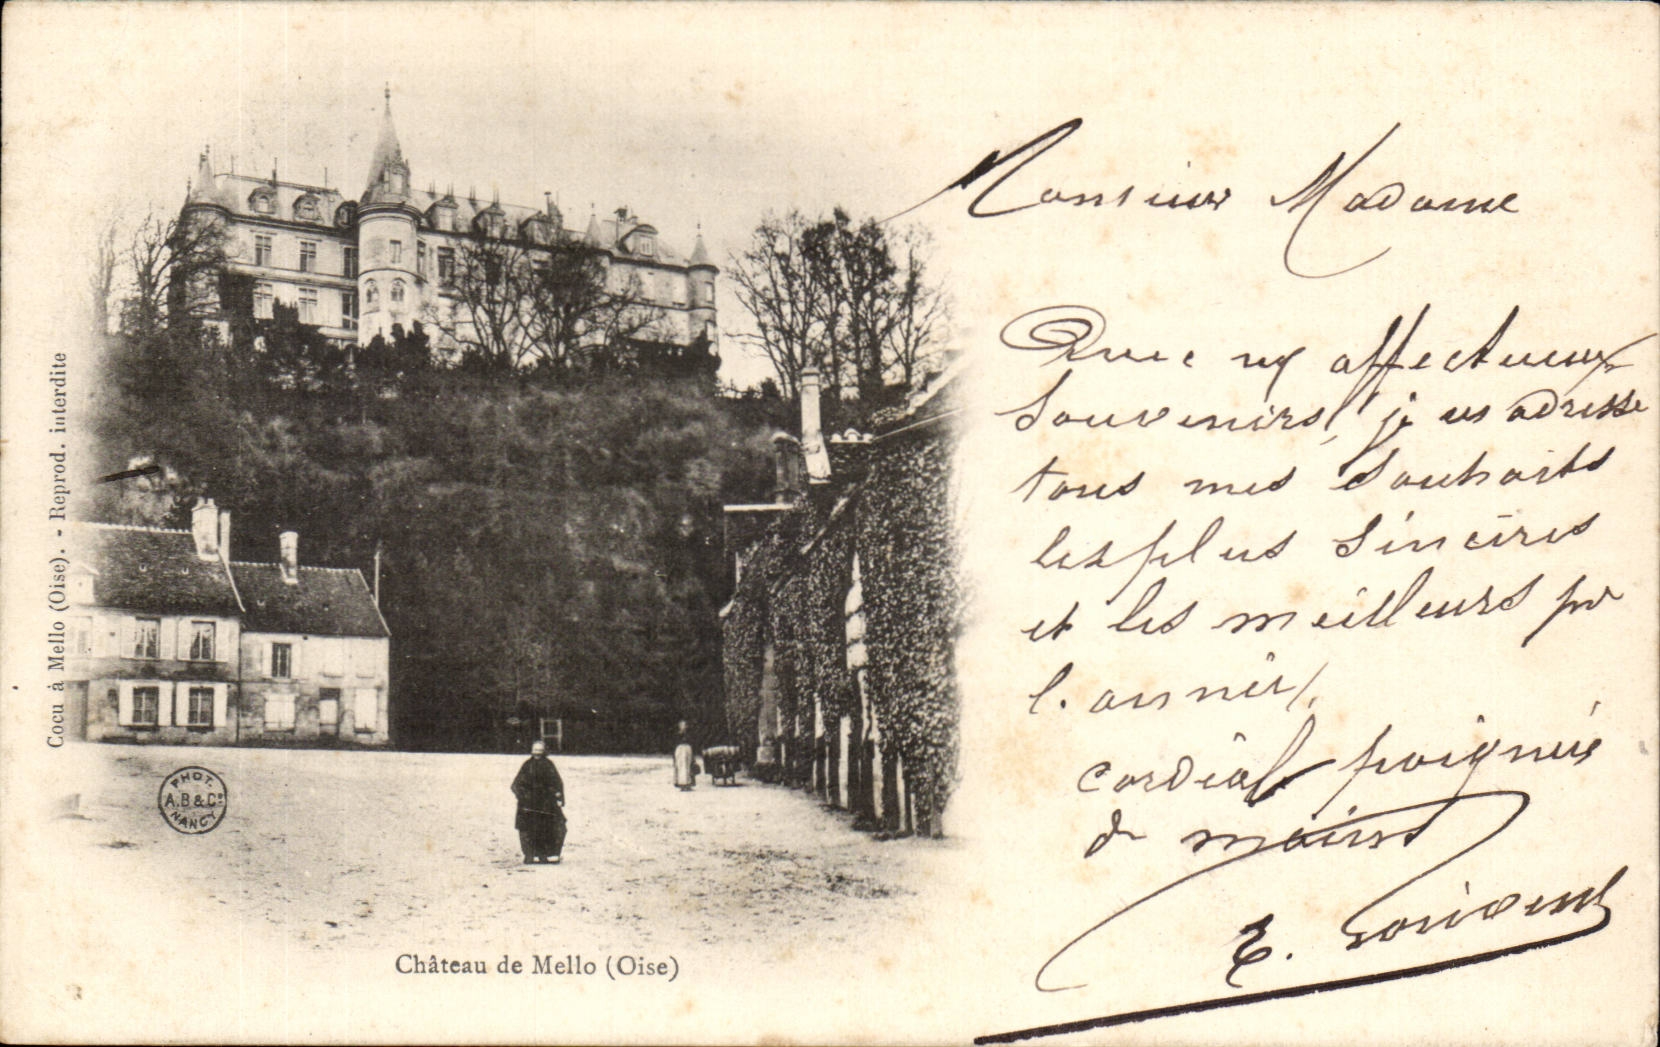 Cocu à Mello (Oise). - Reprod. interdite
PHOT.
A.B & Cie
NANCY
Château de Mello (Oise)
Monsieur Madame
Avec my affectueux
souvenirs, je vs adresse
tous mes souhaits
les plus sincères
et les meilleurs pr
l'année.
cordial poignée
de mains
E.